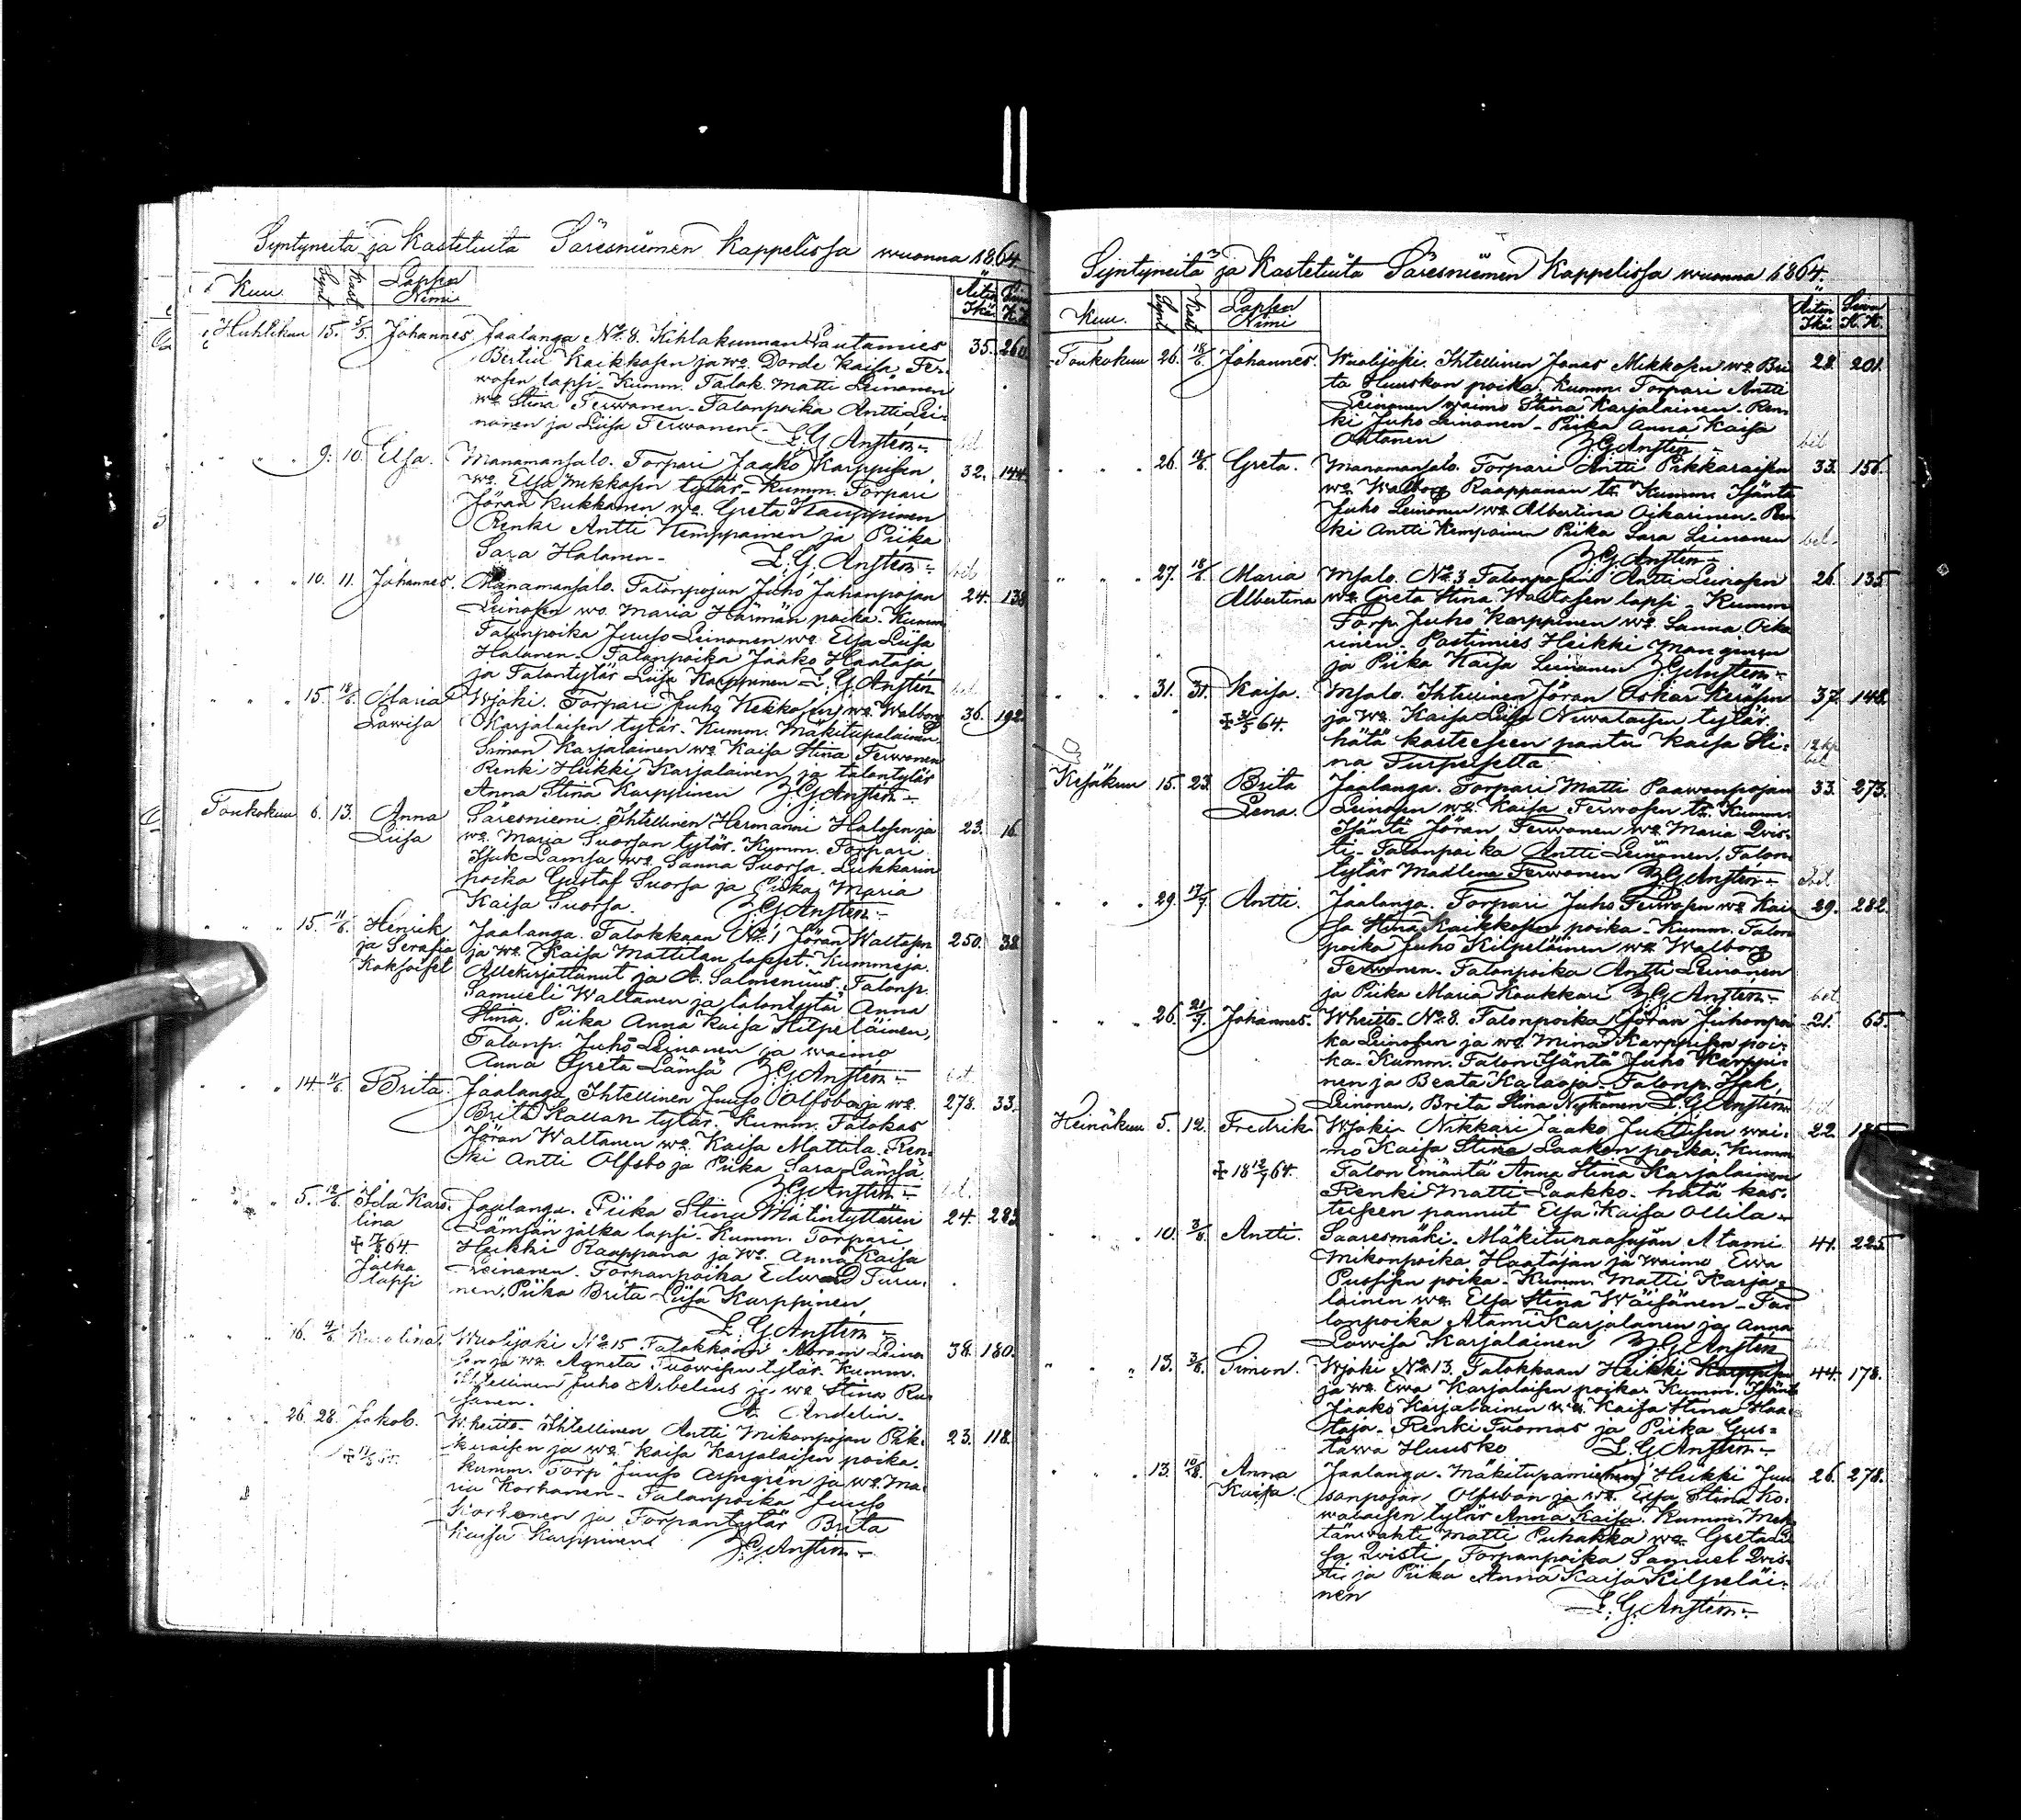 Syntyneitä ja Kastetuita Säresniemen Kappelissa wuonna 1864.
Kuu. Synt. Kast. Lapsen Nimi Äitin Ikä. Siwu K. K.
Huhtikuu 15. 5/5. Johannes Jaalanga No 8. Kihlakunnan Lautamies 35. 260
Bertil Kaikkosen ja wo. Dorde Kaisa Fer-
wosen lapsi. Kumm. Talok. Matti Leinonen
wo Stina Ferwonen. Talonpoika Antti Lei-
nonen ja Liisa Ferwonen. L. G. Anstén
9. 10. Elsa. Manamansalo. Torpari Jaako Karppisen 32. 144
wo. Elsa Mikkosen tytär. Kumm. Torpari
Jöran Kukkonen wo. Greta Kauppinen
Renki Antti Kemppainen ja Piika
Sara Halanen. L. G. Anstén
10. 11. Johannes. Manamansalo. Talonpojan Juho Juhonpojan 24. 138
Leinosen wo. Maria Härmän poika. Kumm.
Talonpoika Juuso Leinonen wo. Elsa Liisa
Halonen. Talonpoika Jaako Haataja
ja Talontytär Liisa Karppinen L. G. Anstén
15. 18/6. Maria Wjoki. Torpari Juho Kekkosen wo. Walborg 36. 192
Lowisa Karjalaisen tytär. Kumm. Mäkitupalainen
Simon Karjalainen wo Kaisa Stina Ferwonen
Renki Heikki Karjalainen ja talontytär
Anna Stina Karppinen L. G. Anstén
Toukokuu 6. 13. Anna Säresniemi. Ihtellinen Hermanni Halosen ja 23. 16
Liisa wo Maria Suorsan tytär. Kumm. Torpari
Isak Lämsä wo. Sanna Suorsa. Lukkarin
poika Gustaf Suorsa ja Piika Maria
Kaisa Suorsa. L. G. Anstén
15. 11/6. Henrik Jaalanga. Talokkaan No 1 Jöran Waltosen 250. 38
ja Serafia ja wo. Kaisa Mattilan lapset. Kummeja.
Kaksoiset Allekirjottanut ja A. Salmenius. Talonp.
Samueli Waltanen ja talontytär Anna
Stina. Piika Anna Kaisa Kilpeläinen,
Talonp. Juho Leinonen ja waimo
Anna Greta Lämsä L. G. Anstén
14. 11/6. Brita Jaalanga Ihtellinen Juuso Olfsbo ja wo. 278. 33.
Brita Kallan tytär. Kumm. Talokas
Jöran Waltanen wo. Kaisa Mattila. Ren-
ki Antti Olfsbo ja Piika Sara Lämsä
L. G. Anstén
5. 12/6. Ida Karo- Jaalanga. Piika Stina Matintyttären 24. 283
lina Lämsän jälka lapsi. Kumm. Torpari
64. Heikki Raappana ja wo. Anna Kaisa
Jälka Leinonen. Torpanpoika Edward Turu-
lapsi nen, Piika Brita Liisa Karppinen
L. G. Anstén
16. Karolina. Wuolijoki No 15. Talokkaan Abram Leino- 38. 180.
sen ja wo Agneta Tuowisen tytär. Kumm.
Ihtellinen Juho Arbelius ja wo Stina Ru-
sanen. A. Andelin.
26. 28. Jakob. Wheitto. Ihtellinen Antti Mikonpojan Pik- 23. 118.
karaisen ja wo. Kaisa Karjalaisen poika.
Kumm. Torp. Juuso Aspegrén ja wo. Ma-
ria Korhonen. Talonpoika Juuso
Korhonen ja Torpantytär Brita
Kaisa Karppinen L. G. Anstén
Syntyneitä ja Kastetuita Säresniemen Kappelissa wuonna 1864.
Kuu. Synt. Kast. Lapsen Nimi Äitin Ikä. Siwu K. K.
Toukokuu 26. 18/6. Johannes. Wuolijoki. Ihtellinen Jonas Mikkosen wo Bri- 28. 201.
ta Huuskon poika. Kumm. Torpari Antti
Leinonen waimo Stina Karjalainen. Ren-
ki Juho Leinonen. Piika Anna Kaisa
Ahtonen L. G. Anstén bet
26. 18/6. Greta. Manamansalo. Torpari Antti Pikkaraisen 33. 156.
wo Walborg Raappanan tr. Kumm. Isäntä
Juho Leinonen wo Albertina Oikarinen. Ren-
ki Antti Kempainen Piika Sara Leinonen bet.
L. G. Anstén
27. 18/6. Maria Msalo. No 3. Talonpojan Antti Leinosen 26. 135
Albertina wo Greta Stina Waltosen lapsi. Kumm.
Torp. Juho Karppinen wo. Sanna Oika-
rinen. Postimies Heikki Mangonen
ja Piika Kaisa Leinonen L. G. Anstén
31. 31. Kaisa. Msalo. Ihtellinen Jöran Askar Keräsen 37. 148.
64. ja wo. Kaisa Liisa Niwalaisen tytär.
hätä kasteeseen pantu Kaisa Sti- 12 kp
na Turpeiselta bet
Kesäkuu 15. 23. Brita Jaalanga. Torpari Matti Paawonpojan 33. 273.
Lena. Leinosen wo. Kaisa Ferwosen tr. Kumm.
Isäntä Jöran Ferwonen wo Maria Qvis-
ti. Talonpoika Antti Leinonen, Talon-
tytär Madlena Ferwonen L. G. Anstén bet
29. 17/7. Antti. Jaalanga. Torpari Juho Ferwosen wo Kai- 29. 282.
sa Stina Kaikkosen poika. Kumm. Talon-
poika Juho Kilpeläinen wo Walborg
Ferwonen. Talonpoika Antti Leinonen
ja Piika Maria Koukkari L. G. Anstén bet.
26. 21/7. Johannes. Wheitto. No 8. Talonpoika Jöran Juhonpoi- 21. 65.
ka Leinosen ja wo Mina Karppisen poi-
ka. Kumm. Talon Isäntä Juho Karppi-
nen ja Beata Kalaoja. Talonp. Isak
Leinonen, Brita Stina Nykänen L. G. Anstén
Heinäkuu 5. 12. Fredrik Wjoki Nikkari Jaako Juntusen wai- 22.
mo Kaisa Stina Laakon poika. Kumm.
18 12/7 64. Talon Emäntä Anna Stina Karjalainen
Renki Matti Laakko. hätä kas-
teeseen pannut Elsa Kaisa Ollila.
10. 3/8. Antti. Saaresmäki. Mäkitunaasujan Atami 41. 225
Mikonpoika Haatajan ja waimo Ewa
Pussisen poika. Kumm. Matti Karja-
lainen wo Elsa Stina Wäisänen. Ta-
lonpoika Atami Karjalanen ja Anna
Lowisa Karjalainen L. G. Anstén
13. 3/8. Simon. Wjoki No 13. Talokkaan Heikki Karppisen 44. 178.
ja wo. Ewa Karjalaisen poika. Kumm. Isäntä
Jaako Karjalainen wo. Kaisa Stina Haa-
taja. Renki Tuomas ja Piika Gus-
tawa Huusko L. G. Anstén
13. 10/8. Anna Jaalanga. Mäkitupamiehen Heikki Juu- 26. 278.
Kaisa. sonpojan Olfsbon ja wo. Elsa Stina Ko-
walaisen tytär Anna Kaisa. Kumm. Met-
tänwahti Matti Puhakka wo. Greta Lii-
sa Qvisti, Torpanpoika Samuel Qvis-
ti ja Piika Anna Kaisa Kilpeläi-
nen L. G. Anstén